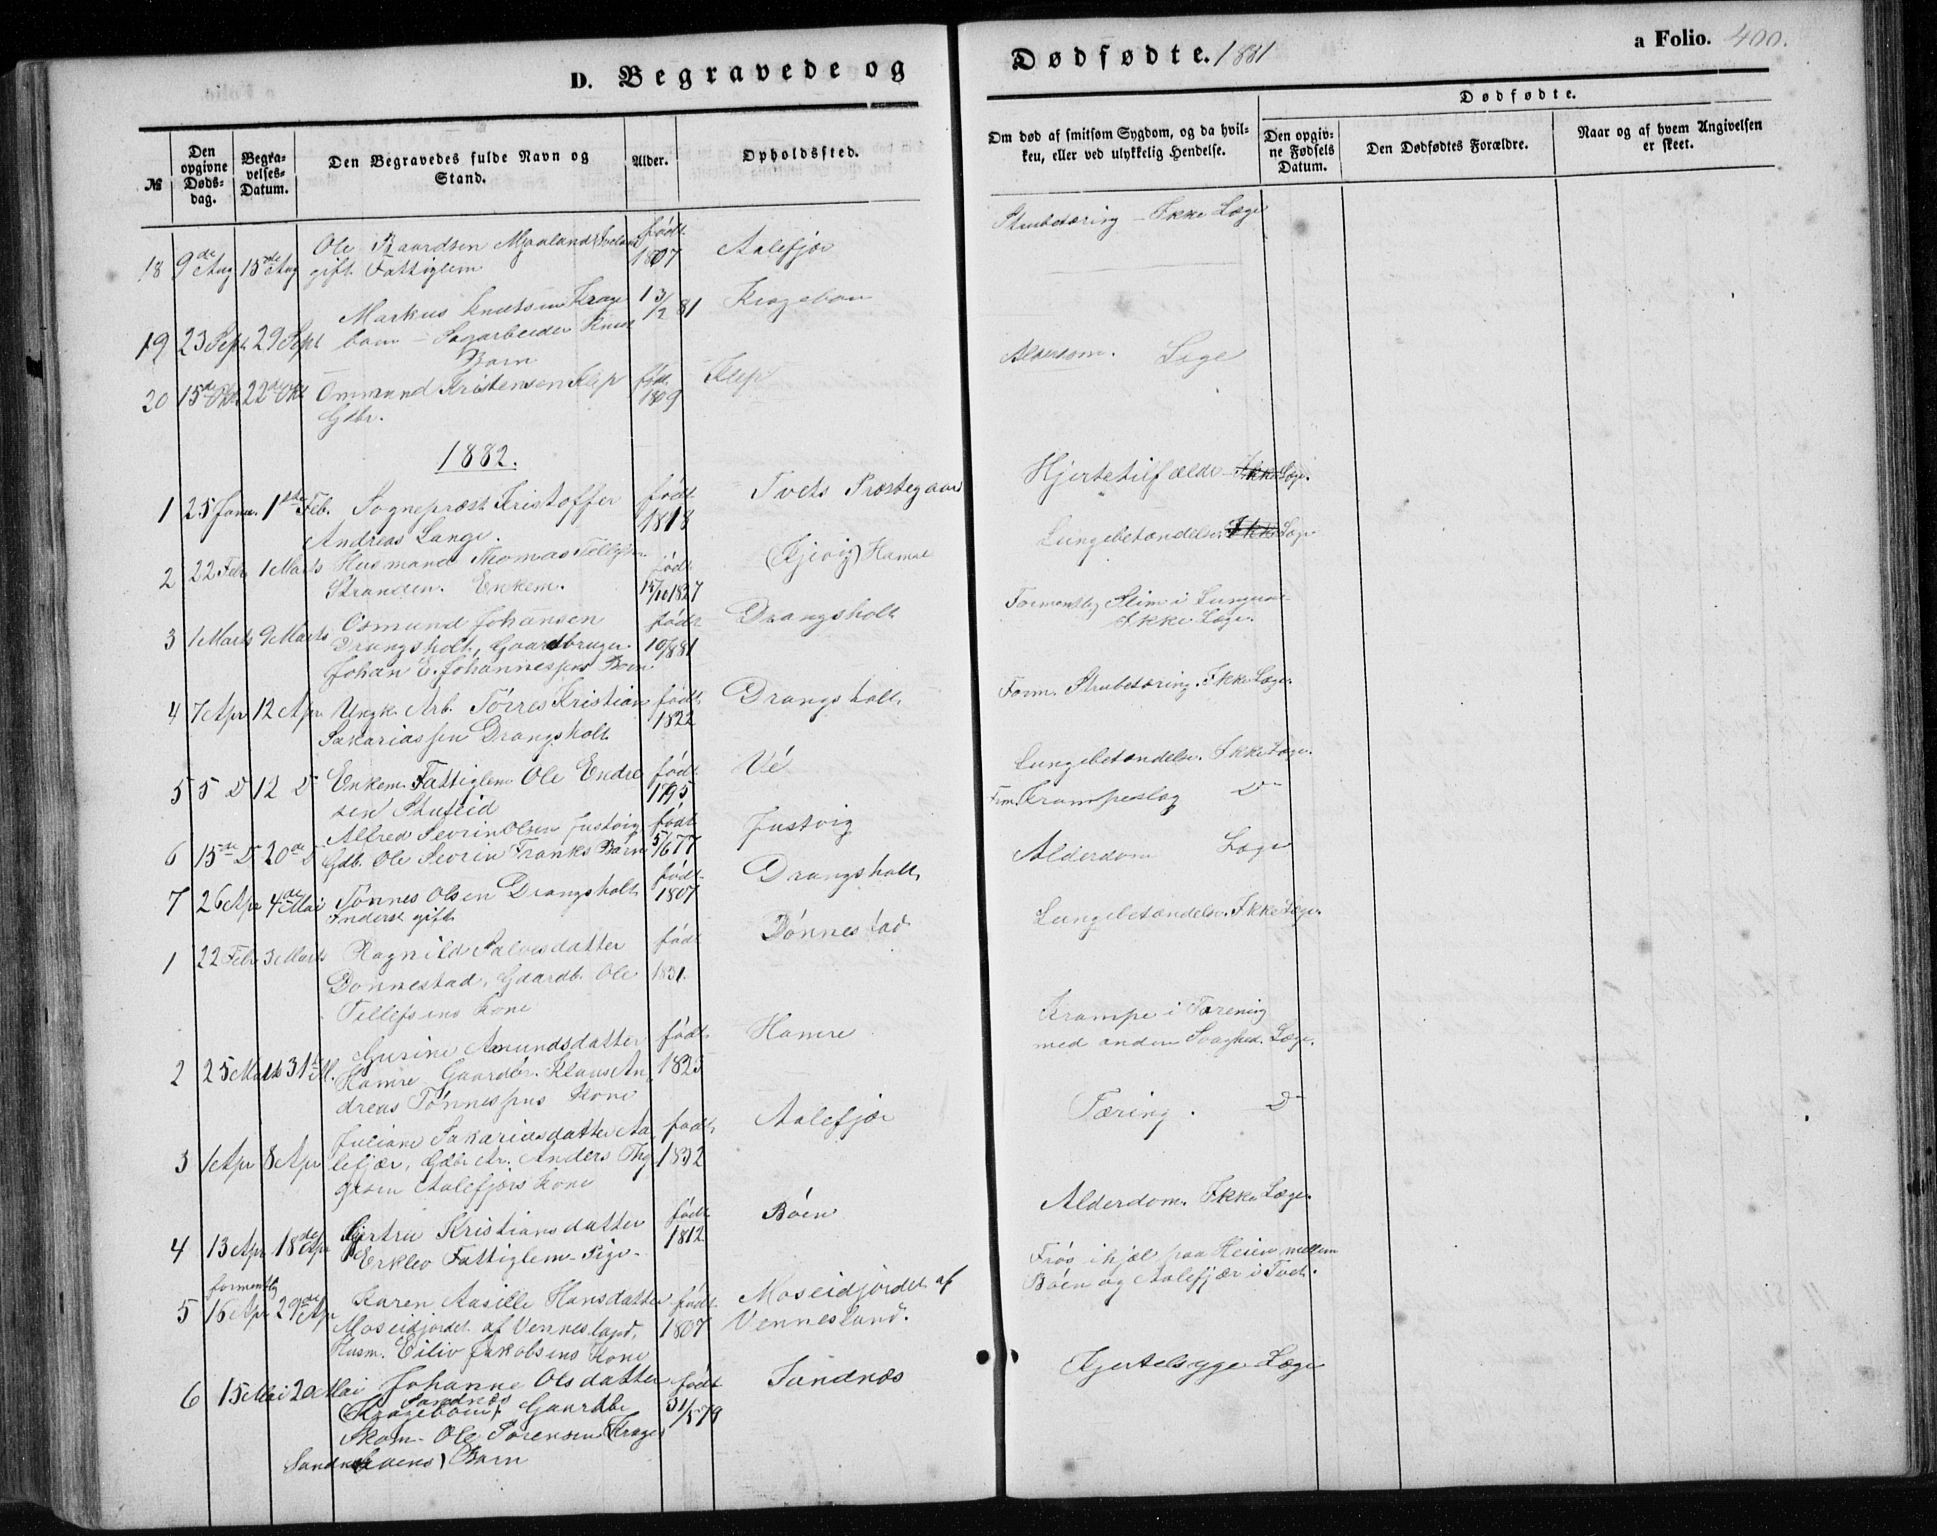 D. Begravede og
Dødfødte. 1881
a Folio. 400.
№
Den opgivne Døds-dag.
Begra-velses-Datum.
Den Begravedes fulde Navn og Stand.
Alder.
Opholdssted.
Om død af smitsom Sygdom, og da hvil-ken, eller ved ulykkelig Hendelse.
Dødfødte.
Den opgiv-ne Fødsels Datum.
Den Dødfødtes Forældre.
Naar og af hvem Angivelsen er skeet.
18 9de Aug 15de Aug Ole Baardsen Mjaaland
gift. Fattiglem
født 1807
Aalefjær
Strubetæring - Ikke Læge
19 23 Sept 29 Sept Markus Knutsen Krage
boen - Sagarbeider Knut
Barn
13/2 81
Krageboen
20 15de Okt 22de Okt Ommund Kristensen Klep
Gdbr.
fød. 1809
Klep
Alderdom. Læge
1882.
1 25 Janu. 1ste Feb. Sogneprest Kristoffer
Andreas Lange.
født 1818
Tveits Præstegaard
Hjertetilfælde Ikke Læge.
2 22 Febr 1 Marts Husmand Thomas Tellefsen
Stranden. Enkem.
født 14/10 1827
(Kjevig) Hamre
Lungebetændelse. Ikke Læge
3 1 Marts 9 Marts Osmund Johansen
Drangsholt, Gaardbruger
Johan E. Johannessens Barn
født 10/8 81
Drangsholt
Formentlig Slim i Lungerne
Ikke Læge.
4 7 Apr 12 Apr Ungk. Arb. Tørres Kristian
Sakariassen Drangsholt
født 1822
Drangsholt
Form. Strubetæring. Ikke Læge.
5 5 D 12 D Enkem. Fattiglem Ole Endre
sen Stufeid
født 1795
Vé
Lungebetændelse. Ikke Læge.
6 15de D 20de D Alfred Sevrin Olsen Justvig
Gdb. Ole Sevrin Franks Barn
født 5/6 77
Justvig
Frm. Krampeslag D
7 26 Apr 4de Mai Tønnes Olsen Drangsholt
Inderst gift
født 1807
Drangsholt
Alderdom Læge
1 22 Febr 3 Marts Ragnild Salvesdatter
Dønnestad, Gaardb. Ole
Tellefsens Kone
født 1831.
Dønnestad
Lungebetændelse. Ikke Læge.
2 25 Marts 31te M. Gurine Amundsdatter
Hamre Gaardbr. Klaus An
dreas Tønnessens Kone
født 1825
Hamre
Krampe i Forening
med anden Svaghed. Læge.
3 1 Apr 8 Apr Juliane Sakariasdatter Aa
lefjær, Gdbr. Anders Thy
gesen Aalefjærs Kone
født 1832
Aalefjær
Tæring. D
4 13 Apr 18de Apr Gjertru Kristiansdatter
Erklev Fattiglem Pige
født 1812
Bøen
Alderdom. Ikke Læge.
5 formentlig 16 Apr 29de Apr Karen Aasille Hansdatter
Moseidjordet af Vennesland,
Husm. Eiliv Jakobsens Kone
født 1807
Moseidjordet af
Vennesland.
Frøs ihjel paa Heien mellem
Bøen og Aalefjær i Tveit.
6 15 Mai 20 Mai Johanne Olsdatter
Sandnæs
(Krageboen) Gaardbr
Skom. Ole Sørensen (Krage
Sandnæs boens) Barn
født 31/5 79
Sandnæs
Kjertelsyge Læge